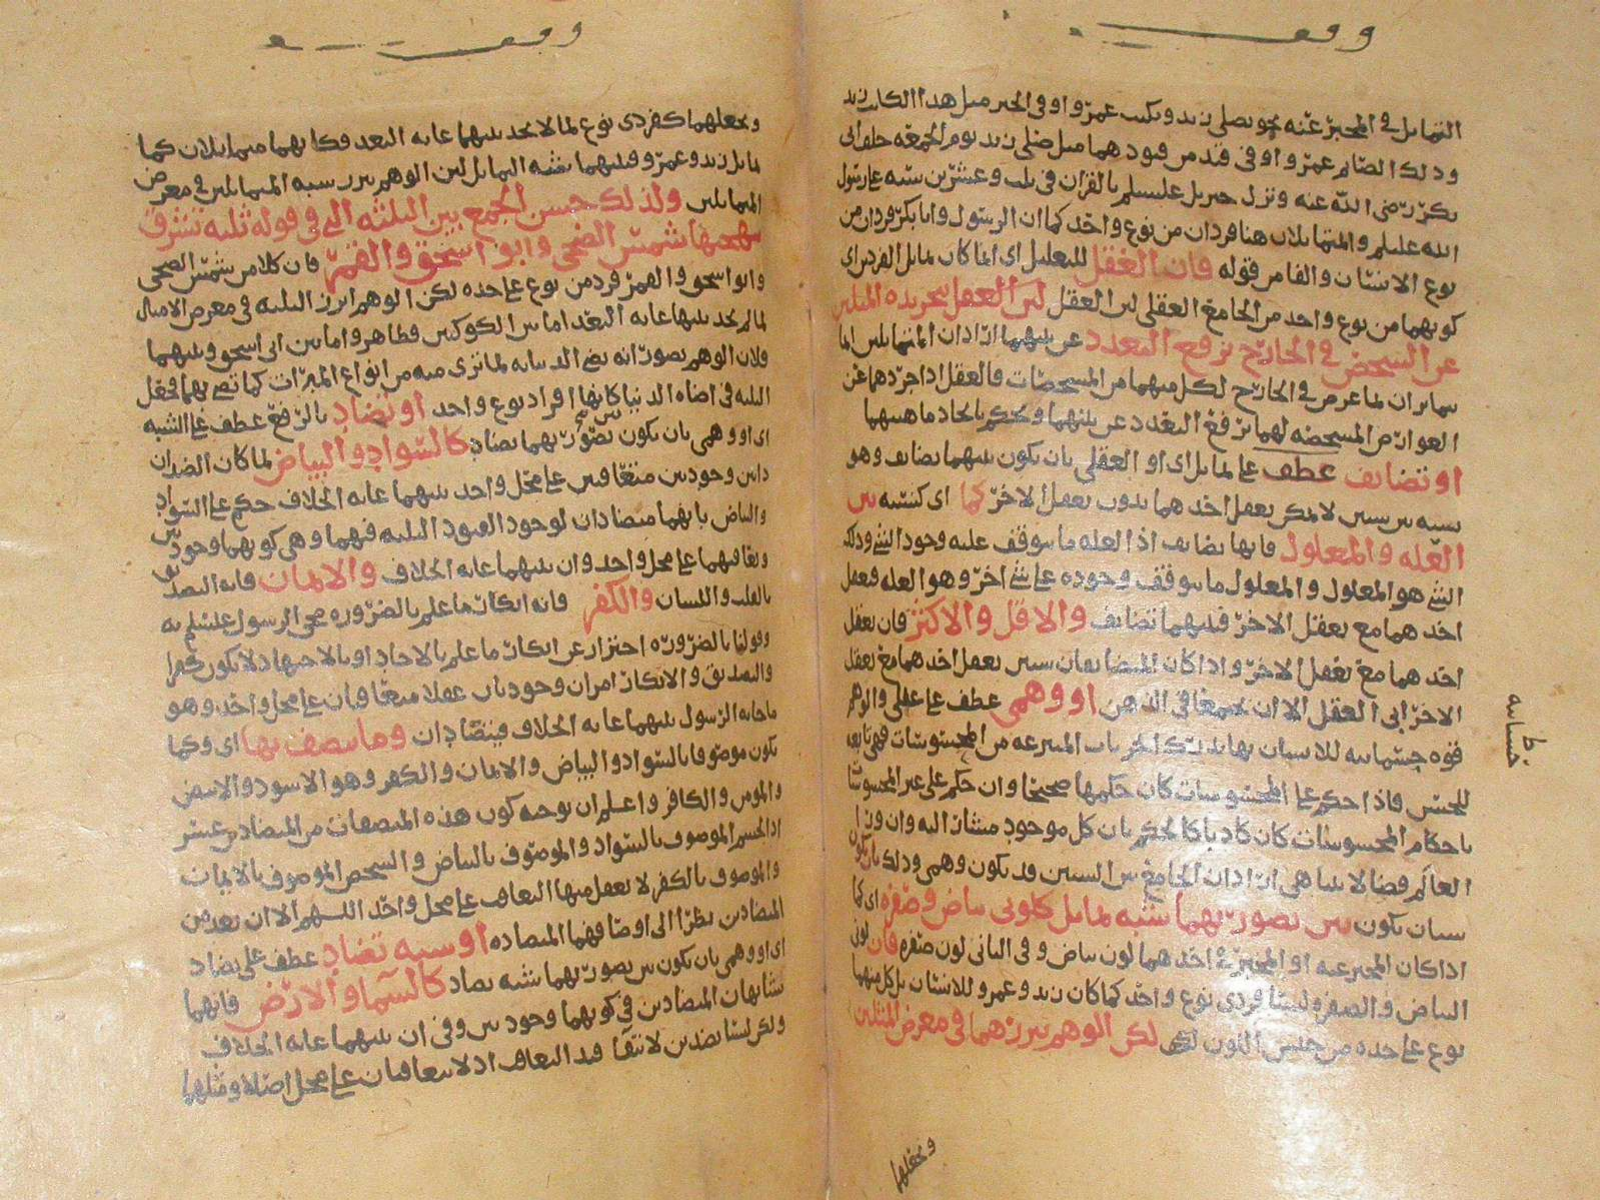 وقف
التماثل في المخبر عنه نحو يصلي زيد ويكتب عمرو او في الخبر مثل هذا الكاتب زيد
وذلك الصائم عمرو او في قيد من قيودهما مثل صلى زيد يوم الجمعه خلف ابي
بكر رضي الله عنه ونزل جبريل عليسلم بالقران في ثلث وعشرين سنه على رسول
الله عليسلم والمتماثلان هنا فردان من نوع واحد كما ان الرسول وابا بكر فردان من
نوع الانسان والقامر قوله فان العقل للتعليل اي انما كان تماثل الفردين اي
كونهما من نوع واحد من الجامع العقلي لان العقل لان العقل بتجريده المثلين
عن التشخص في الخارج يرفع التعدد عن بينهما اذ اذان المتماثلين انما
يتمايزان لما عرض في الخارج لكل منهما من المشخصات فالعقل اذا جردهما عن
العوارض المشخصه لهما يرفع التعدد عن بينهما ويحكم باتحاد ماهيتهما
او تضايف عطف على تماثل اي او العقلي بان يكون بينهما تضايف وهو
نسبه بين شيئين لا يمكن تعقل احدهما بدون تعقل الاخر كما اي كنسبه بين
العله والمعلول فانها تضايف اذ العله ما يتوقف عليه وجود الشي وذلك
الشي هو المعلول والمعلول ما يتوقف وجوده على شي اخر وهو العله فتعقل
احدهما مع تعقل الاخر فبينهما تضايف والاقل والاكثر فان تعقل
احدهما مع تعقل الاخر واذا كان المتضايفان شيئين تعقل احدهما مع تعقل
الاخر ابى العقل الا ان يجمعا في الذهن او وهمي عطف على عقلي والوهم
قوه جسمانيه للانسان بها يدرك الجزئيات المنتزعه من المحسوسات فهي تابعه
للحس فاذا حكم على المحسوسات كان حكمها صحيحا وان حكم على غير المحسوسات
باحكام المحسوسات كان كاذبا كالحكم بان كل موجود مشار اليه وان ورا
العالم فضا لا يتناهى اذ اذان الجامع بين الشيئين قد يكون وهمي وذلك بان يكون
بسبان يكون بين تصوريهما شبه تماثل كلوني بياض وصفره اي كما
اذا كان المخبر عنه او المخبر في احدهما لون بياض وفي الثاني لون صفره فان لوني
البياض والصفره ليسا فردي نوع واحد كما كان زيد وعمرو للانسان بل كل منهما
نوع على حده من جنس اللون لكن لكن الوهم يبرزهما في معرض المثلين
ويجعلهما
جسمانيه
وقف
ويجعلهما كفردي نوع لما لا يجد بينهما غايه البعد فكانهما متماثلان كما
تماثل زيد وعمرو فبينهما شبه التماثل لان الوهم يبرز شبه المتماثلين في معرض
المتماثلين ولذلك حسن الجمع بين الثلثه الي في قوله ثلثه تشرق
ببهجتها شمس الضحى وابو اسحق والقمر فان كلا من شمس الضحى
وابو اسحق والقمر فرد من نوع على حده لكن الوهم ابرز الثلثه في معرض الامثال
لما لم يجد بينها غايه البعد اما بين الكوكبين فظاهر واما بين ابي اسحق وبينهما
فلان الوهم يصور انه يضي الدنيا به لما نرى منه من انواع المبرات كما تضي بهما فجعل
الثلثه في اضاه الدنيا كانها افراد نوع واحد او تضاد بالرفع عطف على الشبه
اي او وهمي بان يكون بين تصوريهما تضاد كالسواد والبياض لما كان الضدان
ذاتين وجوديين متعاقبين على محل واحد بينهما غايه الخلاف حكم على السواد
والبياض بانهما متضادان لوجود القيود الثلثه فيهما وهي كونهما وجوديين
وتعاقبهما على محل واحد وان بينهما غايه الخلاف والايمان فانه التصديق
بالقلب واللسان والكفر فانه انكار ما علم بالضروره مجي الرسول عليسلم به
وقولنا بالضروره احتراز عن انكار ما علم بالاحاد او بالاجتهاد لا يكون كفرا
والتصديق والانكار امران وجوديان عقلا متعاقبان على محل واحد وهو
ما جا به الرسول بينهما غايه الخلاف فيتضادان وما يتصف بها اي وكما
يكون موصوفا بالسواد والبياض والايمان والكفر وهو الاسود والابيض
والمومن والكافر واعلم ان توجه كون هذه المتصفات من المتضادين عسر
اذ الجسم الموصوف بالسواد والموصوف بالبياض والشخص الموصوف بالايمان
والموصوف بالكفر لا يعقل منها التعاقب على محل واحد اللهم الا ان يعد من
المتضادين نظرا الى اوصافهما المتضاده او شبه تضاد عطف على تضاد
اي او وهمي بان يكون بين تصوريهما شبه تضاد كالسما والارض فانهما
يشابهان المتضادين في كونهما وجوديين وفي ان بينهما غايه الخلاف
ولكن ليسا بضدين لانتفا قيد التعاقب اذ لا يتعاقبان على محل اصلا ومثلهما